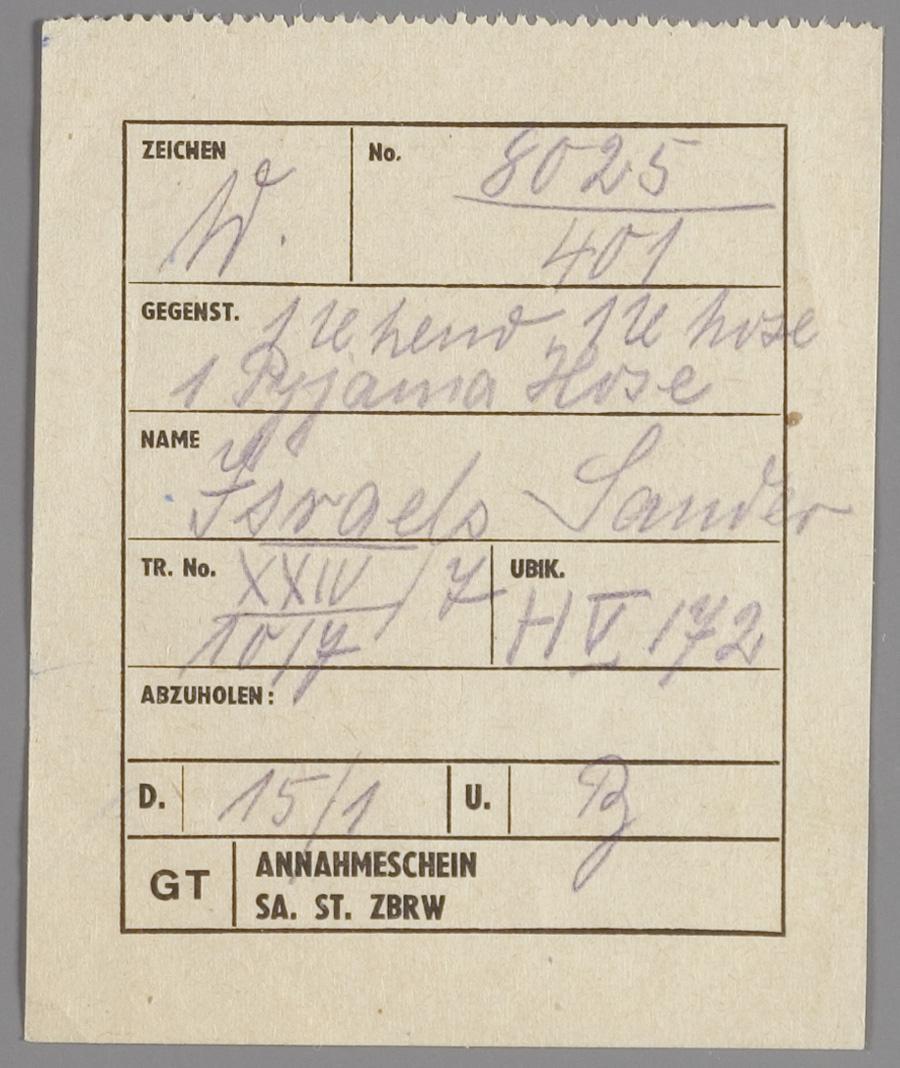 ZEICHEN W. No. 8025
401
GEGENST. 1 Uhemd, 1 Uhose
1 Pyjama Hose
NAME Israels Sander
TR. No. XXIV/7 UBIK.
1017 H V 172
ABZUHOLEN:
D. 15/1 U. B
GT ANNAHMESCHEIN
SA. ST. ZBRW